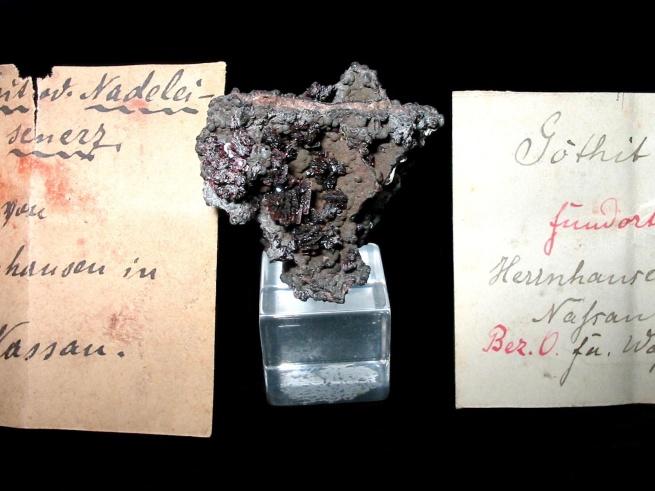 od. Nadelei-
senerz.
von
hausen in
Nassan.
Göthit
fundort
Herrnhause
Naſsau
Bez. O. fu. W